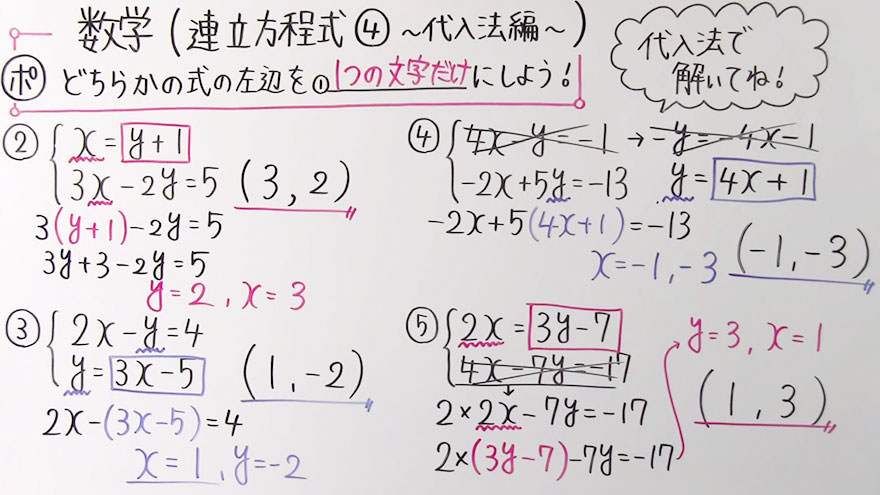 数学(連立方程式④ ~代入法編~)
ポ どちらかの式の左辺を①1つの文字だけにしよう!
代入法で
解いてね!
② x=y+1
3x-2y=5 (3,2)
3(y+1)-2y=5
3y+3-2y=5
y=2,x=3
③ 2x-y=4
y=3x-5 (1,-2)
2x-(3x-5)=4
x=1,y=-2
④ 4x-y=-1→-y=-4x-1
-2x+5y=-13 y=4x+1
-2x+5(4x+1)=-13
x=-1,-3 (-1,-3)
⑤ 2x=3y-7
4x-7y=-17
2×2x-7y=-17
2×(3y-7)-7y=-17
y=3,x=1
(1,3)